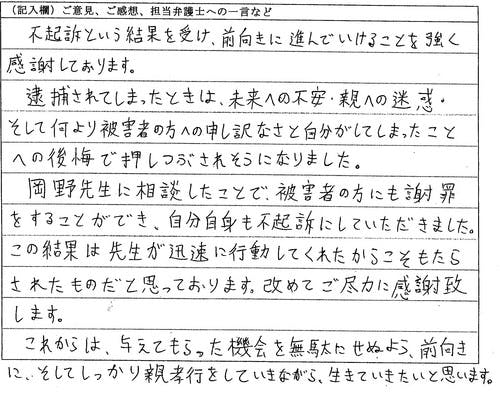 （記入欄）ご意見、ご感想、担当弁護士への一言など
不起訴という結果を受け、前向きに進んでいけることを強く
感謝しております。
逮捕されてしまったときは、未来への不安・親への迷惑・
そして何より被害者の方への申し訳なさと自分がしてしまったこと
への後悔で押しつぶされそうになりました。
岡野先生に相談したことで、被害者の方にも謝罪
をすることができ、自分自身も不起訴にしていただきました。
この結果は先生が迅速に行動してくれたからこそもたら
されたものだと思っております。改めてご尽力に感謝致
します。
これからは、与えてもらった機会を無駄にせぬよう、前向き
に、そしてしっかり親孝行をしていきながら、生きていきたいと思います。